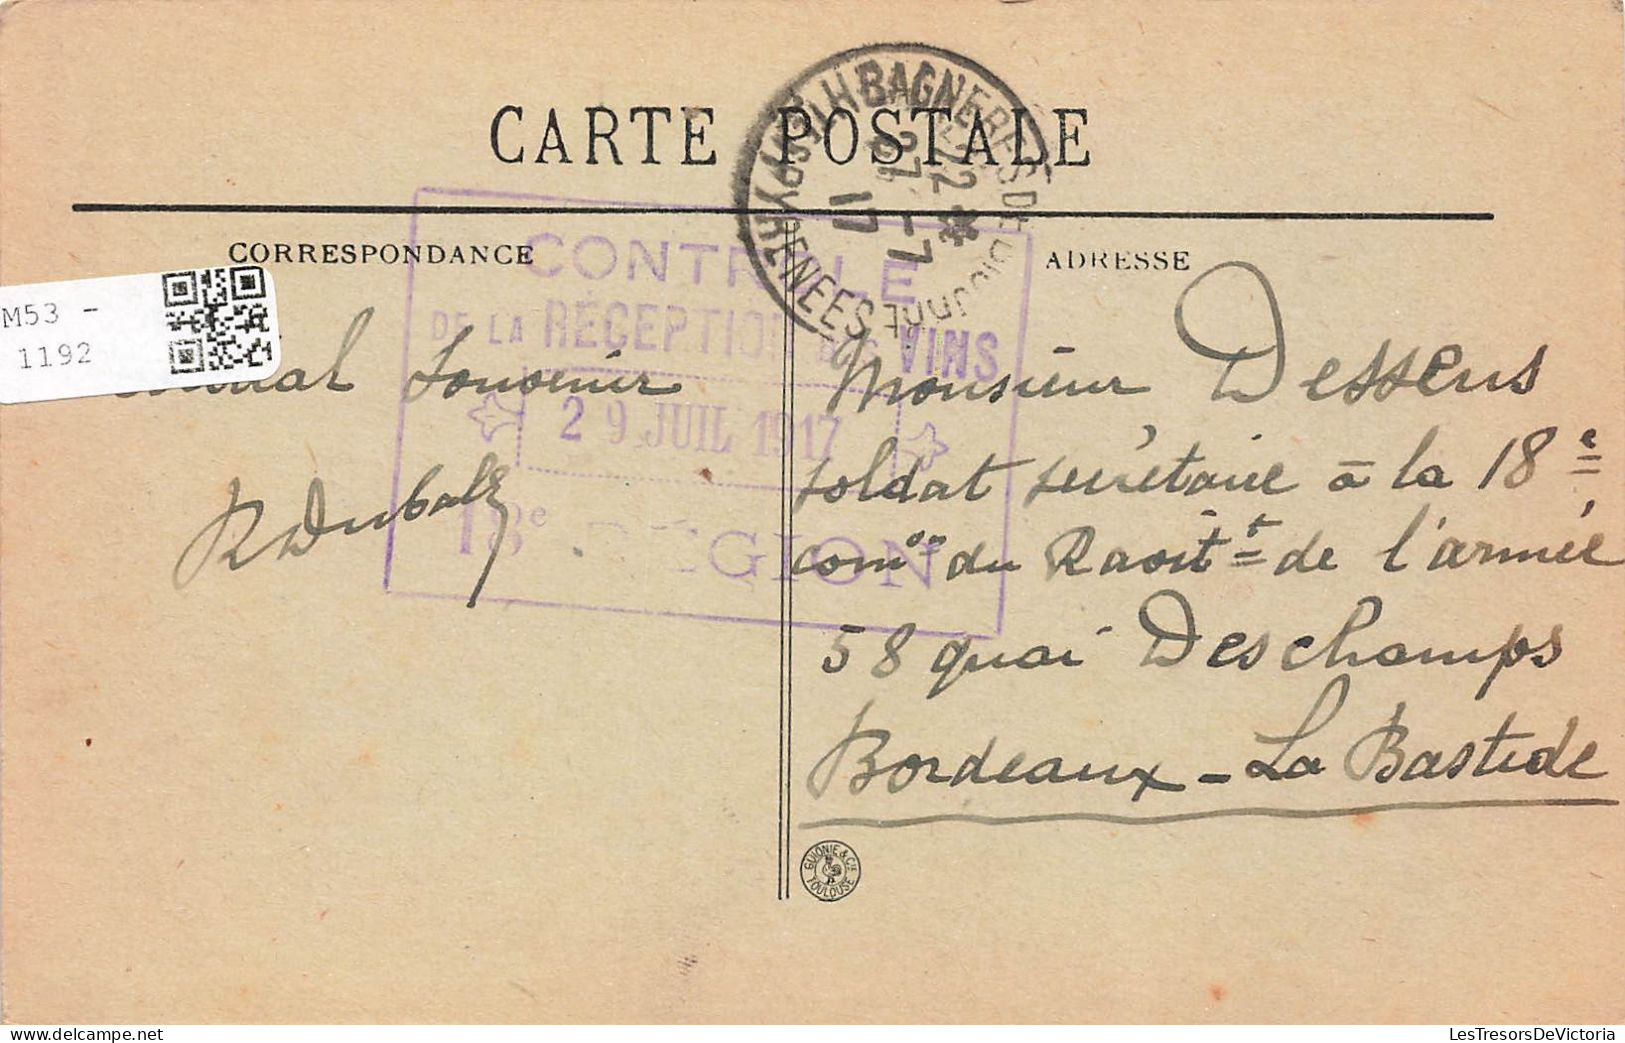 CARTE POSTALE
BAGNERES DE BIGORRE
HTES PYRENEES
22 *
27 -7
17
CORRESPONDANCE
ADRESSE
CONTRÔLE
DE LA RÉCEPTION DES VINS
29 JUIL 1917
18e RÉGION
M53 -
1192
Souvenir
Monsieur Dessens
soldat secrétaire à la 18e
comon du Ravitt de l'armée
58 quai Deschamps
Bordeaux - La Bastide
GUIONIE & CIE
TOULOUSE
LesTresorsDeVictoria